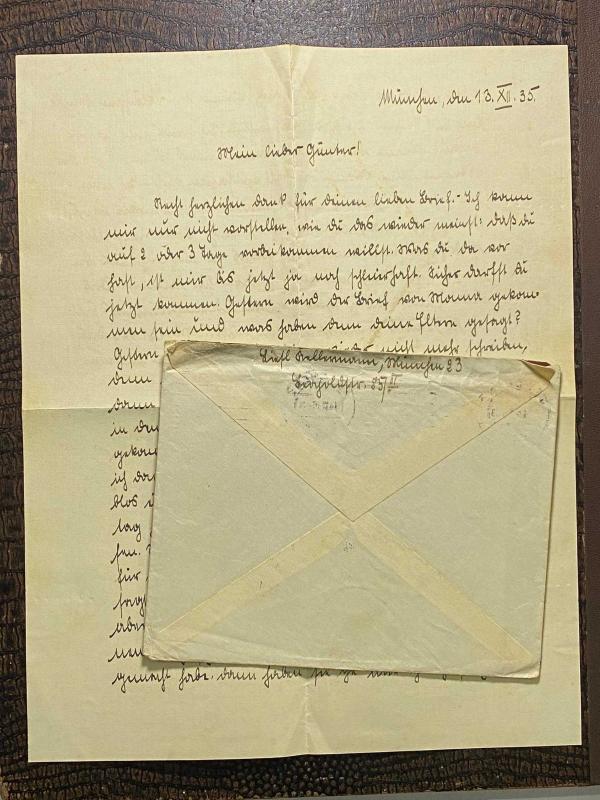 München, den 13. XII. 35.
Mein lieber Günter!
Recht herzlichen Dank für deinen lieben Brief. - Ich kann
mir nur nicht vorstellen, wie du das wieder meinst: daß du
auf 2 oder 3 Tage vorbeikommen willst. Was du da vor
hast, ist mir bis jetzt ja noch schleierhaft. Sicher darfst du
jetzt kommen. Gestern wird der Brief von Mama gekom
men sein und was haben denn deine Eltern gesagt?
Gestern wieder nicht mehr schreiben,
denn
dann
in
ich
blos
tag
für
aber
gemacht habe, dann haben sie
Liesl Kellermann, München 23
85/III